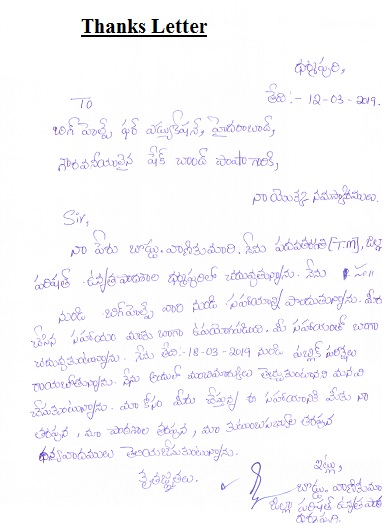 Thanks Letter
ధర్మపురి,
తేది:- 12-03-2019.
To
బిగ్ హెల్ప్ ఫర్ ఎడ్యుకేషన్, హైదరాబాద్,
గౌరవనీయులైన షేక్ చాంద్ పాషా గారికి,
నా యొక్క నమస్కారములు.
Sir,
నా పేరు బొడ్డు. వాణికుమారి. నేను పదవతరగతి [T.m], జిల్లా
పరిషత్ ఉన్నత పాఠశాల ధర్మపురిలో చదువుతున్నాను. నేను
నుండి బిగ్ హెల్ప్ వారి నుండి సహాయాన్ని పొందుతున్నాను. మీరు
చేసిన సహాయం మాకు బాగా ఉపయోగపడింది. మీ సహాయంతో బాగా
చదువుకుంటున్నాను. నేను తేది:- 18-03-2019 నుండి పబ్లిక్ పరీక్షలు
రాయబోతున్నాను. నేను అందులో మంచి మార్కులు తెచ్చుకుంటానని మనవి
చేసుకుంటున్నాను. మా కోసం మీరు చేస్తున్న ఈ సహాయానికి మీకు నా
తరఫున, మా పాఠశాల తరఫున, మా కుటుంబసభ్యుల తరఫున
ధన్యవాదములు తెలియజేసుకుంటున్నాను.
కృతజ్ఞతలు.
ఇట్లు,
బొడ్డు. వాణికుమారి
జిల్లా పరిషత్ ఉన్నత పాఠ
ధర్మపురి.